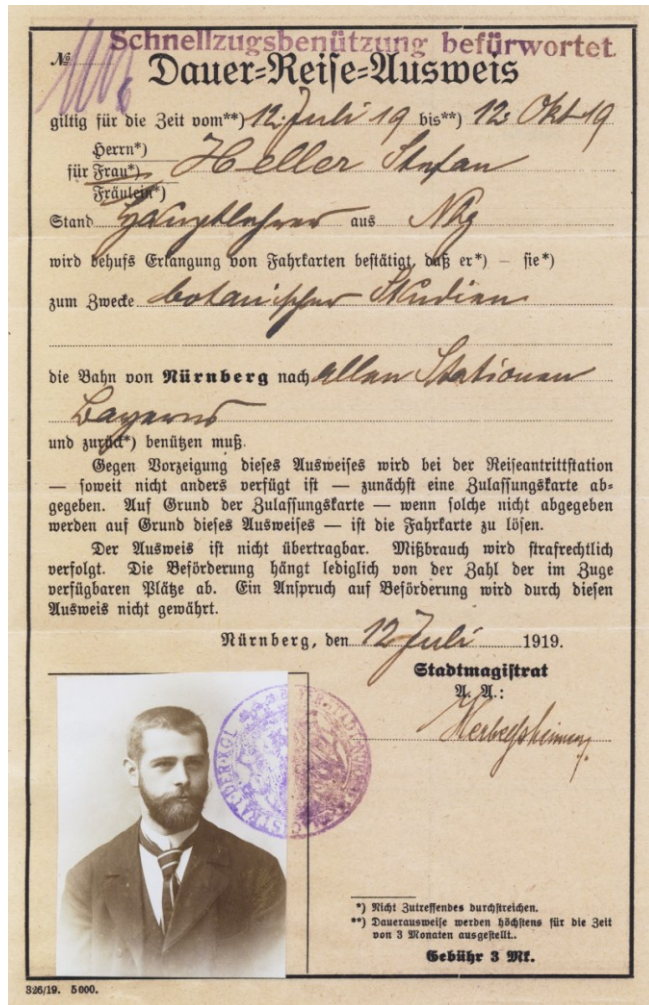 Schnellzugsbenützung befürwortet
No
Dauer=Reise=Ausweis
giltig für die Zeit vom**) 12. Juli 19 bis**) 12. Okt 19
Herrn*)
für Frau*) Heller Stefan
Fräulein*)
Stand Hauptlehrer aus Nbg
wird behufs Erlangung von Fahrkarten bestätigt, daß er*) — sie*)
zum Zwecke botanischer Studien
die Bahn von Nürnberg nach allen Stationen
Bayerns
und zurück*) benützen muß.
Gegen Vorzeigung dieses Ausweises wird bei der Reiseantrittstation
— soweit nicht anders verfügt ist — zunächst eine Zulassungskarte ab-
gegeben. Auf Grund der Zulassungskarte — wenn solche nicht abgegeben
werden auf Grund dieses Ausweises — ist die Fahrkarte zu lösen.
Der Ausweis ist nicht übertragbar. Mißbrauch wird strafrechtlich
verfolgt. Die Beförderung hängt lediglich von der Zahl der im Zuge
verfügbaren Plätze ab. Ein Anspruch auf Beförderung wird durch diesen
Ausweis nicht gewährt.
Nürnberg, den 12 Juli 1919.
Stadtmagistrat
A. A.:
*) Nicht Zutreffendes durchstreichen.
**) Dauerausweise werden höchstens für die Zeit
von 3 Monaten ausgestellt..
Gebühr 3 Mk.
326/19. 5000.